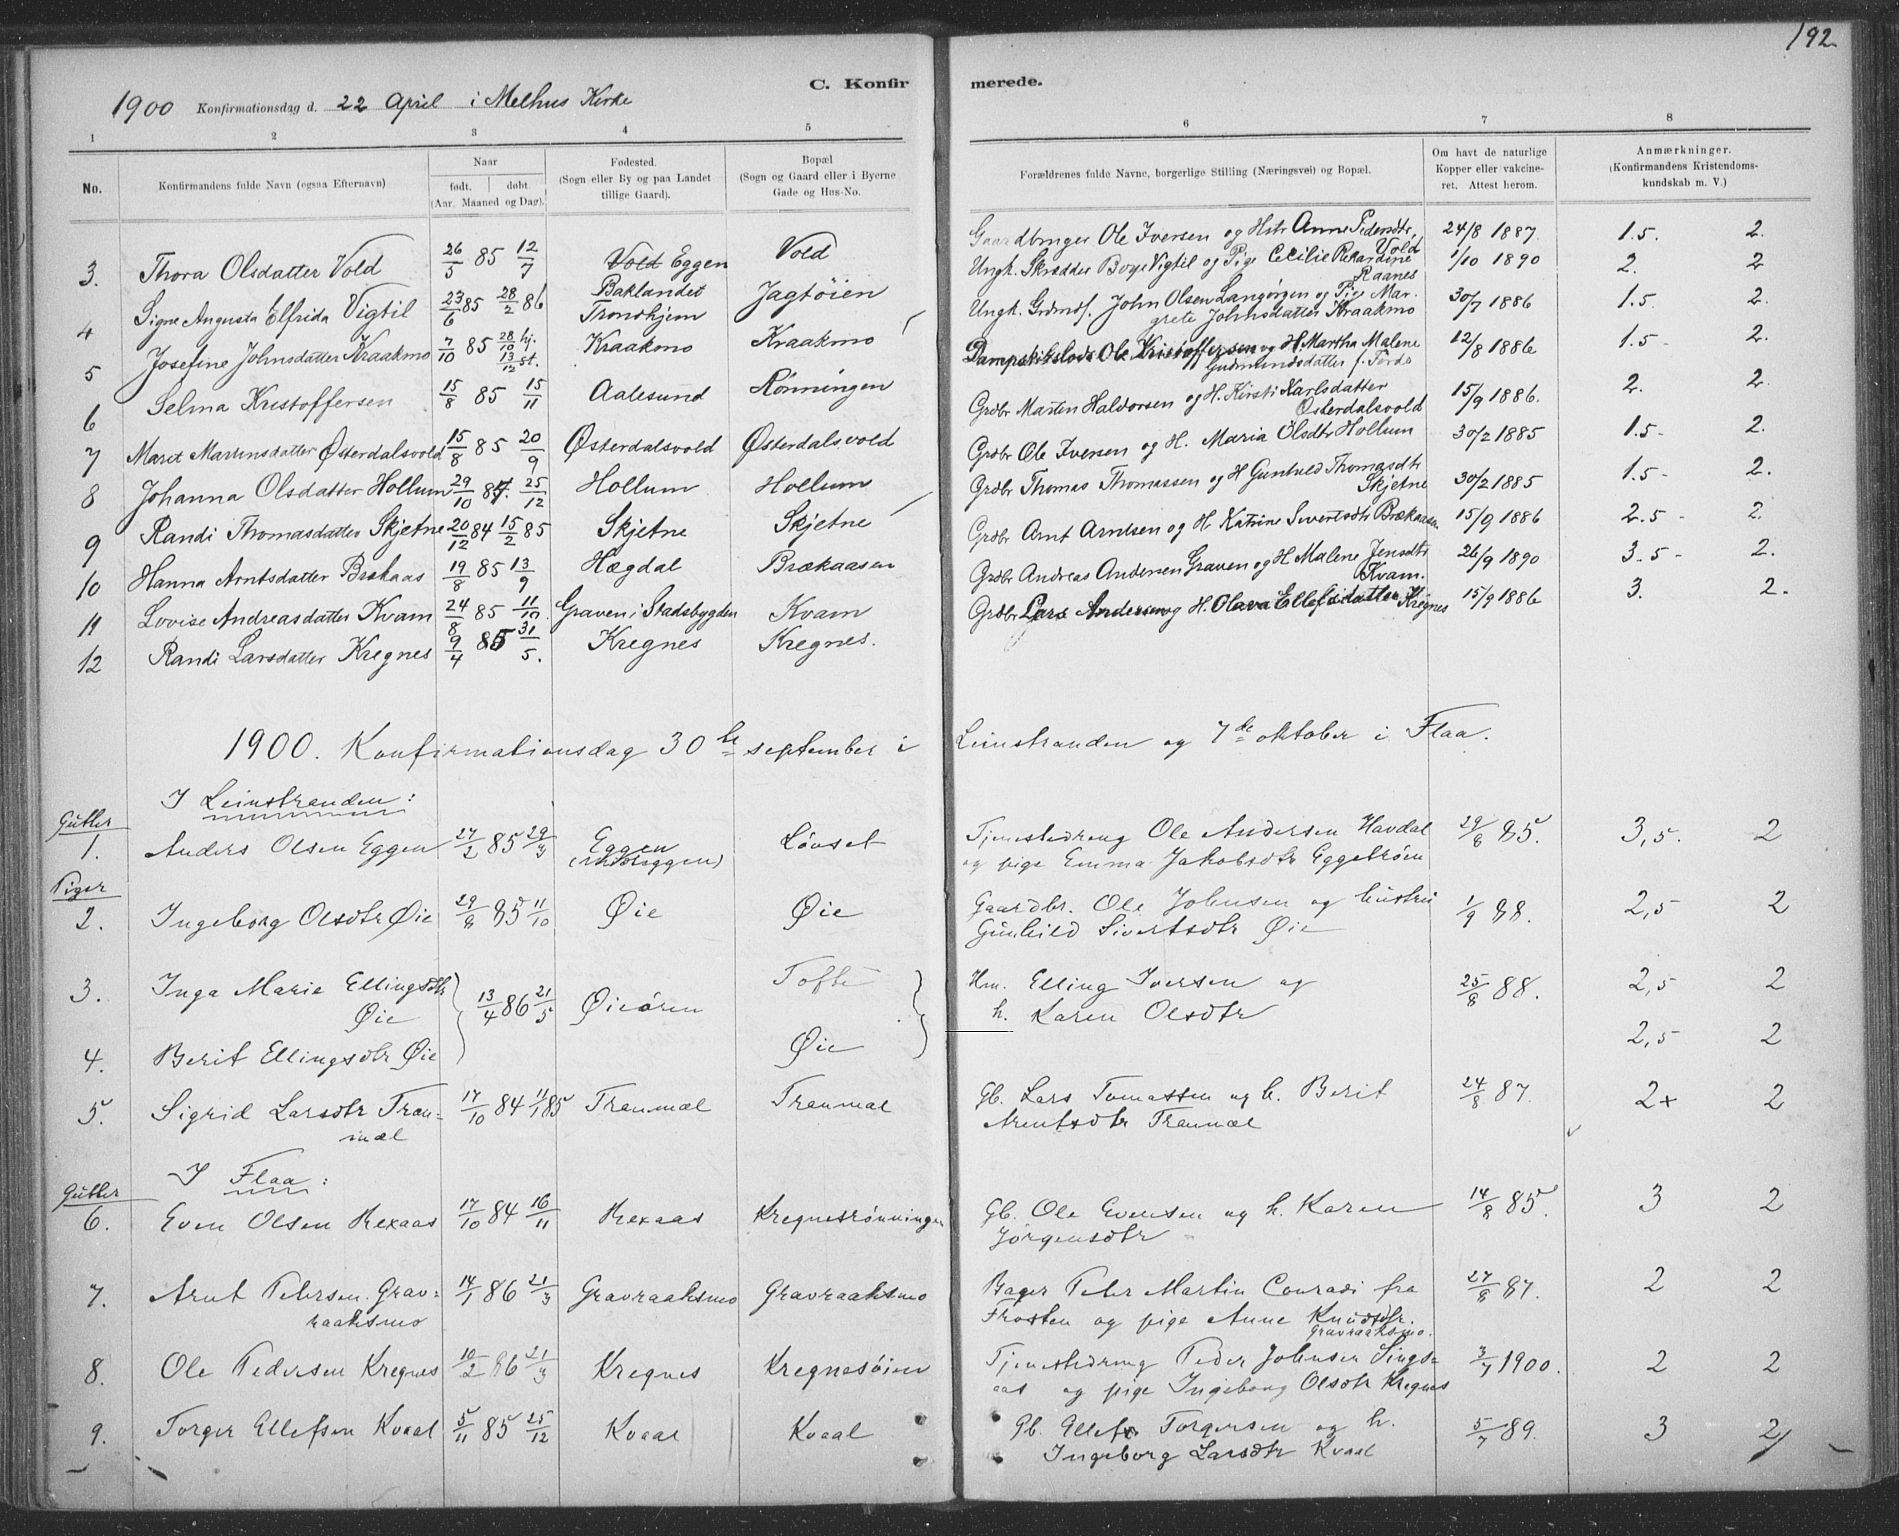 192.
C. Konfirmerede.
1900 Konfirmationsdag d. 22 April i Melhus Kirke
1 2 3 4 5 6 7 8
No. Konfirmandens fulde Navn (ogsaa Efternavn) Naar født. døbt. (Aar. Maaned og Dag). Fødested. (Sogn eller By og paa Landet tillige Gaard). Bopæl (Sogn og Gaard eller i Byerne Gade og Hus-No. Forældrenes fulde Navne, borgerlige Stilling (Næringsvei) og Bopæl. Om havt de naturlige Kopper eller vakcineret. Attest herom. Anmærkninger. (Konfirmandens Kristendomskundskab m. V.)
3. Thora Olsdatter Vold 26/5 85 12/7 Vold Eggen Vold Gaardbruger Ole Iversen og Hstr Anne Pedersdtr, Vold 24/8 1887 1.5. 2.
4 Signe Augusta Elfrida Vigtil 23/6 85 28/2 86 Baklandet Trondhjem Jagtöien Ungk. Skrædder Boye Vigtil og Pige Cecilie Rikardine Raanes 1/10 1890 2. 2
5 Josefine Johnsdatter Kraakmo 7/10 85 28/10 hj. 13/12 st. Kraakmo Kraakmo Ungk. Grdmsf. John Olsen Langørgen og Pige Margrete Johnsdatter Kraakmo 30/7 1886 1.5. 2.
6 Selma Kristoffersen 15/8 85 15/11 Aalesund Rønningen Dampskibslods Ole Kristoffersen og H. Martha Malene Gudmundsdatter f. Fords 12/8 1886 1.5- 2.
7 Marit Martensdatter Østerdalsvold 15/8 85 20/9 Østerdalsvold Østerdalsvold Grdbr Marten Haldorsen og H. Kirsti Karlsdatter Østerdalsvold 15/9 1886. 2. 2.
8 Johanna Olsdatter Hollum 29/10 84. 25/12 Hollum Hollum Grdbr Ole Iversen og H. Maria Olsdtr Hollum 30/2 1885 1.5- 2.
9 Randi Thomasdatter Skjetne 20/12 84 15/2 85 Skjetne Skjetne Grdbr Thomas Thomassen og H Gunhild Thomasdtr Skjetne 30/2 1885 1.5- 2.
10 Hanna Arntsdatter Brækaas 19/8 85 13/9 Hægdal Brækaasen Grdbr Arnt Arntsen og H. Katrine Sivertsdtr Brækaasen 15/9 1886 2.5- 2.
11 Lovise Andreasdatter Kvam 24/8 85 11/10. Graven i Stadsbygden Kvam Grdbr Andreas Andersen Graven og H Malene Jensdtr Kvam. 26/9 1890 3.5- 2.
12 Randi Larsdatter Kregnes 9/4 85 31/5. Kregnes Kregnes. Grdbr Lars Andersen og H. Olava Ellefsdatter Kregnes 15/9 1886 3. 2.
1900. Konfirmationsdag 30te september i Leinstranden og 7de oktober i Flaa.
I Leinstranden:
Gutter
1. Anders Olsen Eggen 27/2 85 29/3 Eggen Løvset Tjenestedreng Ole Andersen Havdal
og pige Emma Jakobsdtr Eggetrøen 29/8 85. 3,5. 2
Piger
2. Ingeborg Olsdtr Øie 29/8 85 11/10 Øie Øie Gaardbr. Ole Johnsen og hustru
Gunhild Sivertsdtr Øie 1/9 88. 2,5 2
3. Inga Marie Ellingsdtr Øie 13/4 86 21/5 Øieören Tofte Hm. Elling Iversen og
h. Karen Olsdtr 25/8 88. 2,5 2
4. Berit Ellingsdtr Øie Øie 2,5 2
5. Sigrid Larsdtr Tranmæl 17/10 84 11/1 85 Tranmæl Tranmæl Gb. Lars Tomassen og h. Berit
Arentsdtr Tranmæl 24/8 87. 2+ 2
I Flaa:
Gutter
6. Even Olsen Rexaas 17/10 84 16/11 Rexaas Kregnesrønningen Gb. Ole Evensen og h. Karen
Jørgensdtr 14/8 85. 3 2
7. Arnt Petersen Gravraaksmo 14/1 86 21/3 Gravraaksmo Gravraaksmo Bager Peter Martin Conradi fra
Frosten og pige Anne Knudsdtr. Gravraaksmo. 27/8 87. 2 2
8. Ole Pedersen Kregnes 10/2 86 21/3 Kregnes Kregnesøien Tjenestedreng Peder Johnsen Singsaas og pige Ingeborg Olsdtr Kregnes 3/7 1900. 2 2
9. Torger Ellefsen Kvaal 5/11 85 25/12 Kvaal Kvaal Gb. Ellef Torgersen og h.
Ingeborg Larsdtr Kvaal 5/7 89. 3 2